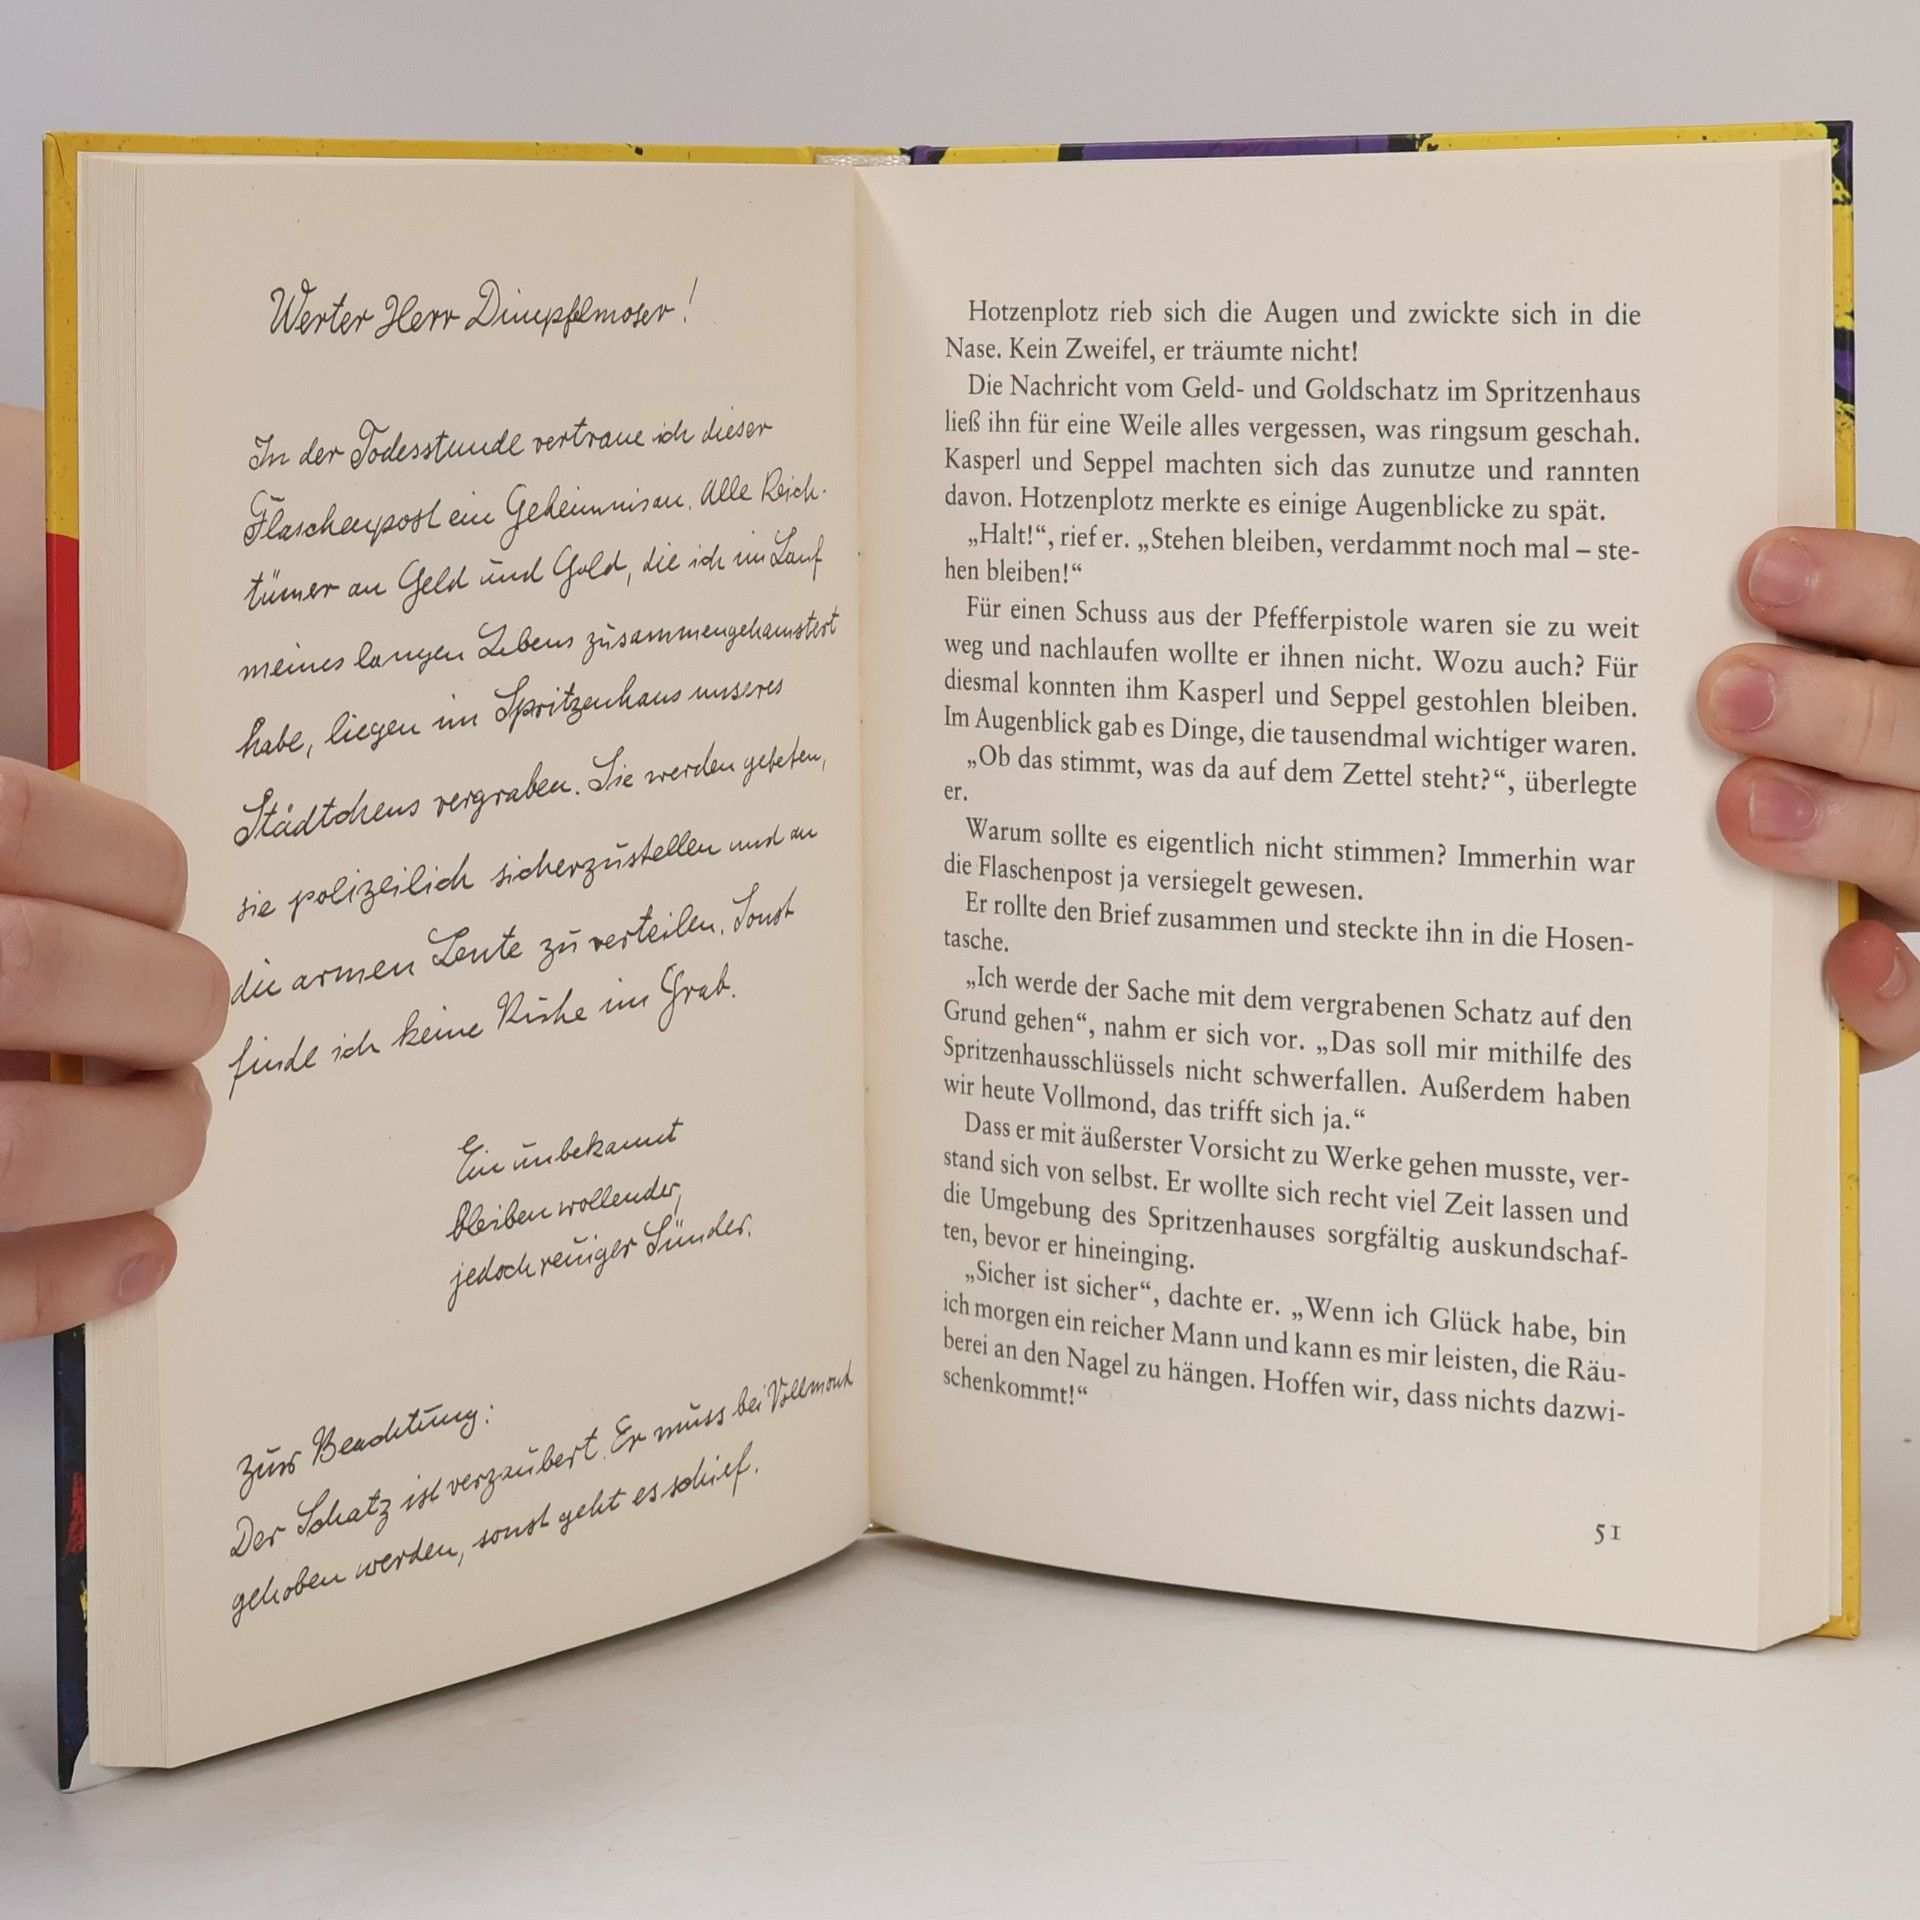 Werter Herr Dimpfelmoser!
In der Todesstunde vertraue ich dieser
Flaschenpost ein Geheimnis an. Alle Reich-
tümer an Geld und Gold, die ich im Lauf
meines langen Lebens zusammengehamstert
habe, liegen im Spritzenhaus unseres
Städtchens vergraben. Sie werden gebeten,
sie polizeilich sicherzustellen und an
die armen Leute zu verteilen. Sonst
finde ich keine Ruhe im Grab.
Ein unbekannt
bleiben wollender,
jedoch reuiger Sünder.
Zur Beachtung:
Der Schatz ist verzaubert. Er muss bei Vollmond
gehoben werden, sonst geht es schief.
Hotzenplotz rieb sich die Augen und zwickte sich in die
Nase. Kein Zweifel, er träumte nicht!
Die Nachricht vom Geld- und Goldschatz im Spritzenhaus
ließ ihn für eine Weile alles vergessen, was ringsum geschah.
Kasperl und Seppel machten sich das zunutze und rannten
davon. Hotzenplotz merkte es einige Augenblicke zu spät.
„Halt!“, rief er. „Stehen bleiben, verdammt noch mal – ste-
hen bleiben!“
Für einen Schuss aus der Pfefferpistole waren sie zu weit
weg und nachlaufen wollte er ihnen nicht. Wozu auch? Für
diesmal konnten ihm Kasperl und Seppel gestohlen bleiben.
Im Augenblick gab es Dinge, die tausendmal wichtiger waren.
„Ob das stimmt, was da auf dem Zettel steht?“, überlegte
er.
Warum sollte es eigentlich nicht stimmen? Immerhin war
die Flaschenpost ja versiegelt gewesen.
Er rollte den Brief zusammen und steckte ihn in die Hosen-
tasche.
„Ich werde der Sache mit dem vergrabenen Schatz auf den
Grund gehen“, nahm er sich vor. „Das soll mir mithilfe des
Spritzenhausschlüssels nicht schwerfallen. Außerdem haben
wir heute Vollmond, das trifft sich ja.“
Dass er mit äußerster Vorsicht zu Werke gehen musste, ver-
stand sich von selbst. Er wollte sich recht viel Zeit lassen und
die Umgebung des Spritzenhauses sorgfältig auskundschaf-
ten, bevor er hineinging.
„Sicher ist sicher“, dachte er. „Wenn ich Glück habe, bin
ich morgen ein reicher Mann und kann es mir leisten, die Räu-
berei an den Nagel zu hängen. Hoffen wir, dass nichts dazwi-
schenkommt!“
51